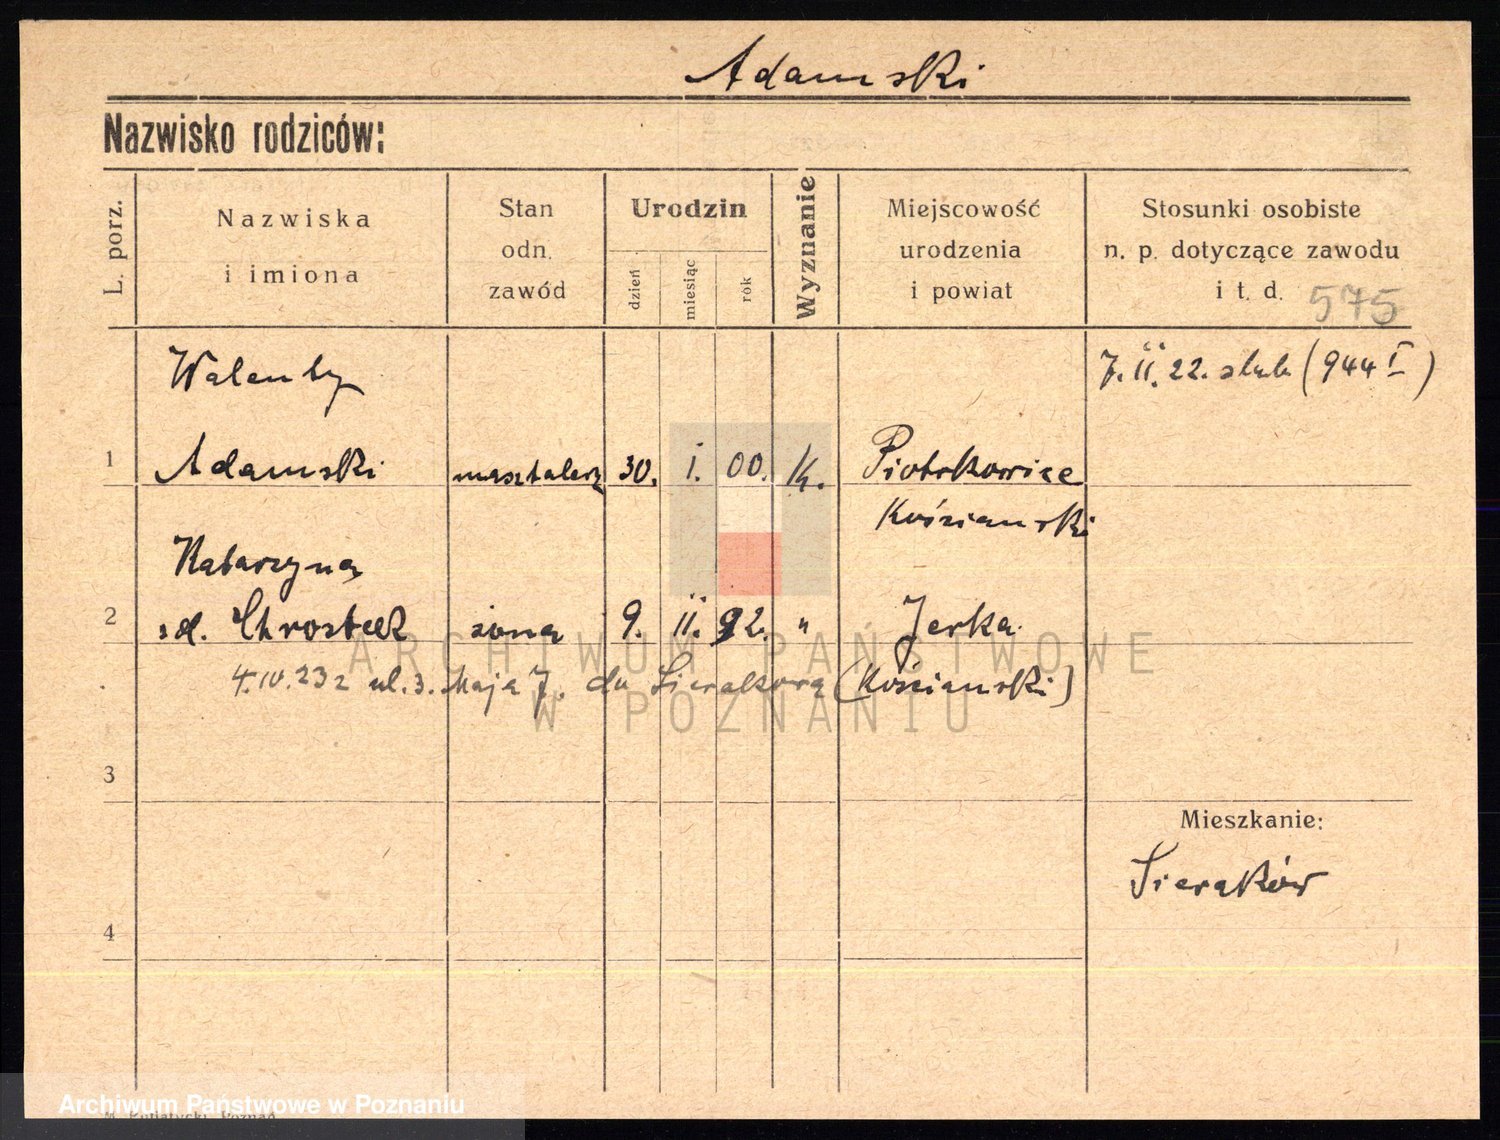 Adamski
Nazwisko rodziców:
L. porz.
Nazwiska
i imiona
Stan
odn.
zawód
Urodzin
dzień
miesiąc
rok
Wyznanie
Miejscowość
urodzenia
i powiat
Stosunki osobiste
n. p. dotyczące zawodu
i t. d.
575
Walenty
7. II. 22. ślub (944 I)
1 Adamski masztalerz 30. I. 00. K. Piotrkowice
Kościański
Katarzyna
2 zd. Chrostek żona 9. II. 92. " Jerka
4.IV.23 z ul. 3. Maja 7. do Sierakowa (Kościański)
ARCHIWUM PAŃSTWOWE
W POZNANIU
3
Mieszkanie:
Sieraków
4
Archiwum Państwowe w Poznaniu
Poznań